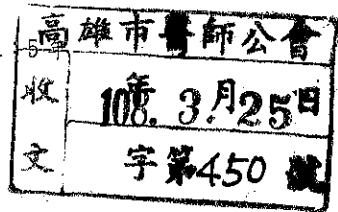 高雄市醫師公會
收文
108年3月25日
字第450號